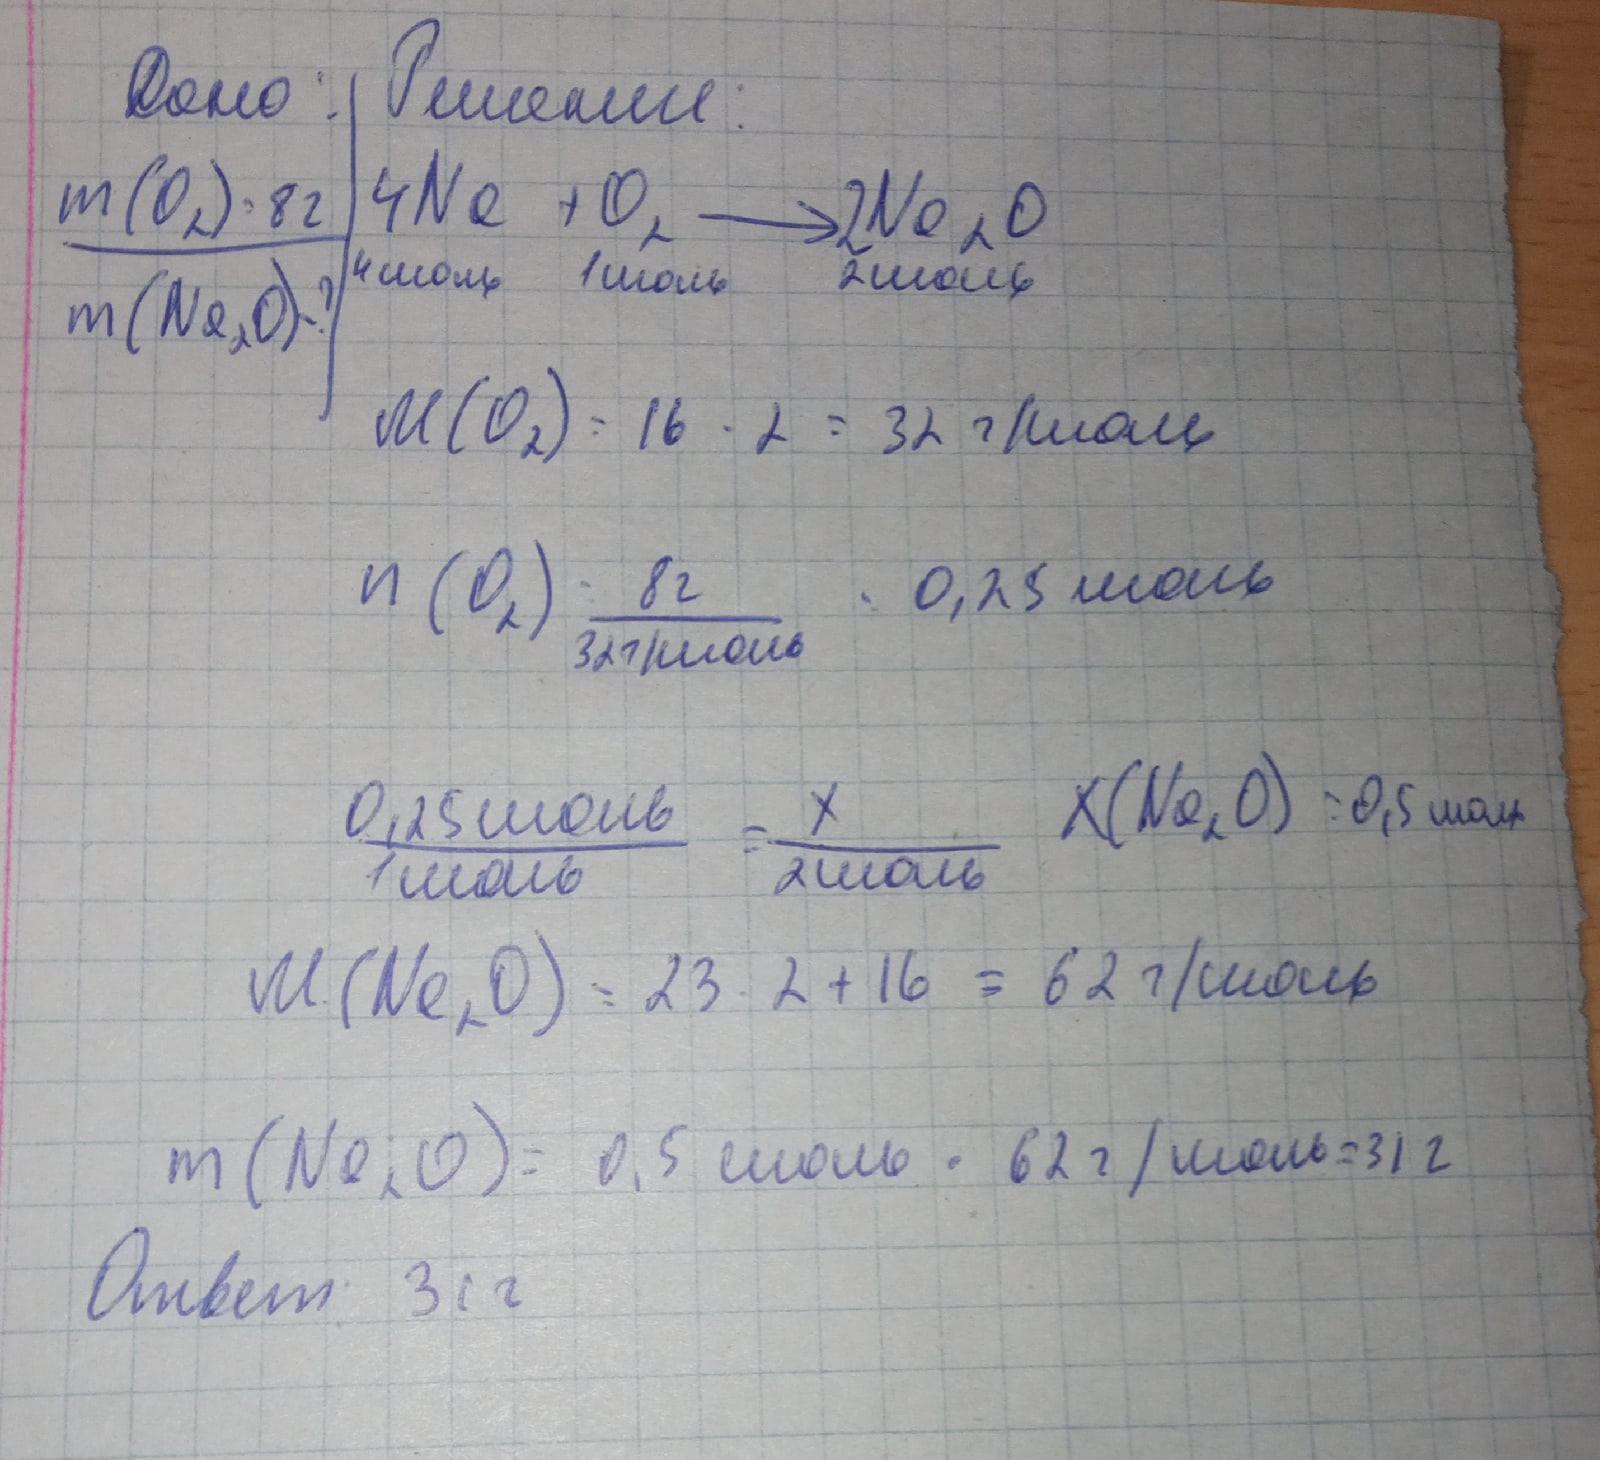 Дано: Решение:
m(O₂)=8г 4Na + O₂ → 2Na₂O
4моль 1моль 2моль
m(Na₂O)-?
M(O₂) = 16 · 2 = 32 г/моль
n(O₂) = 8г / 32г/моль = 0,25 моль
0,25 моль / 1 моль = x / 2 моль x(Na₂O) = 0,5 моль
M(Na₂O) = 23 · 2 + 16 = 62 г/моль
m(Na₂O) = 0,5 моль · 62 г/моль = 31 г
Ответ: 31 г